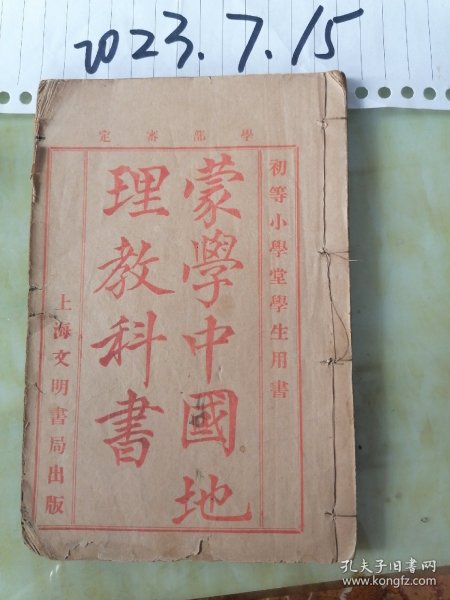 2023.7.15
學部審定
初等小學堂學生用書
蒙學中國地
理教科書
上海文明書局出版
孔夫子旧书网
www.kongfz.com